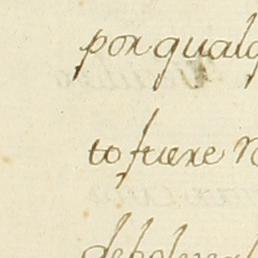 por qualq
to fuere n